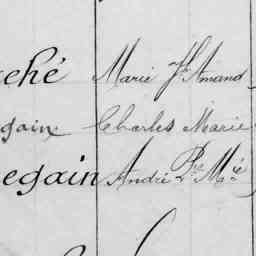 ché Marie Jh Amand
gain Charles Marie
egain André Pre Mie